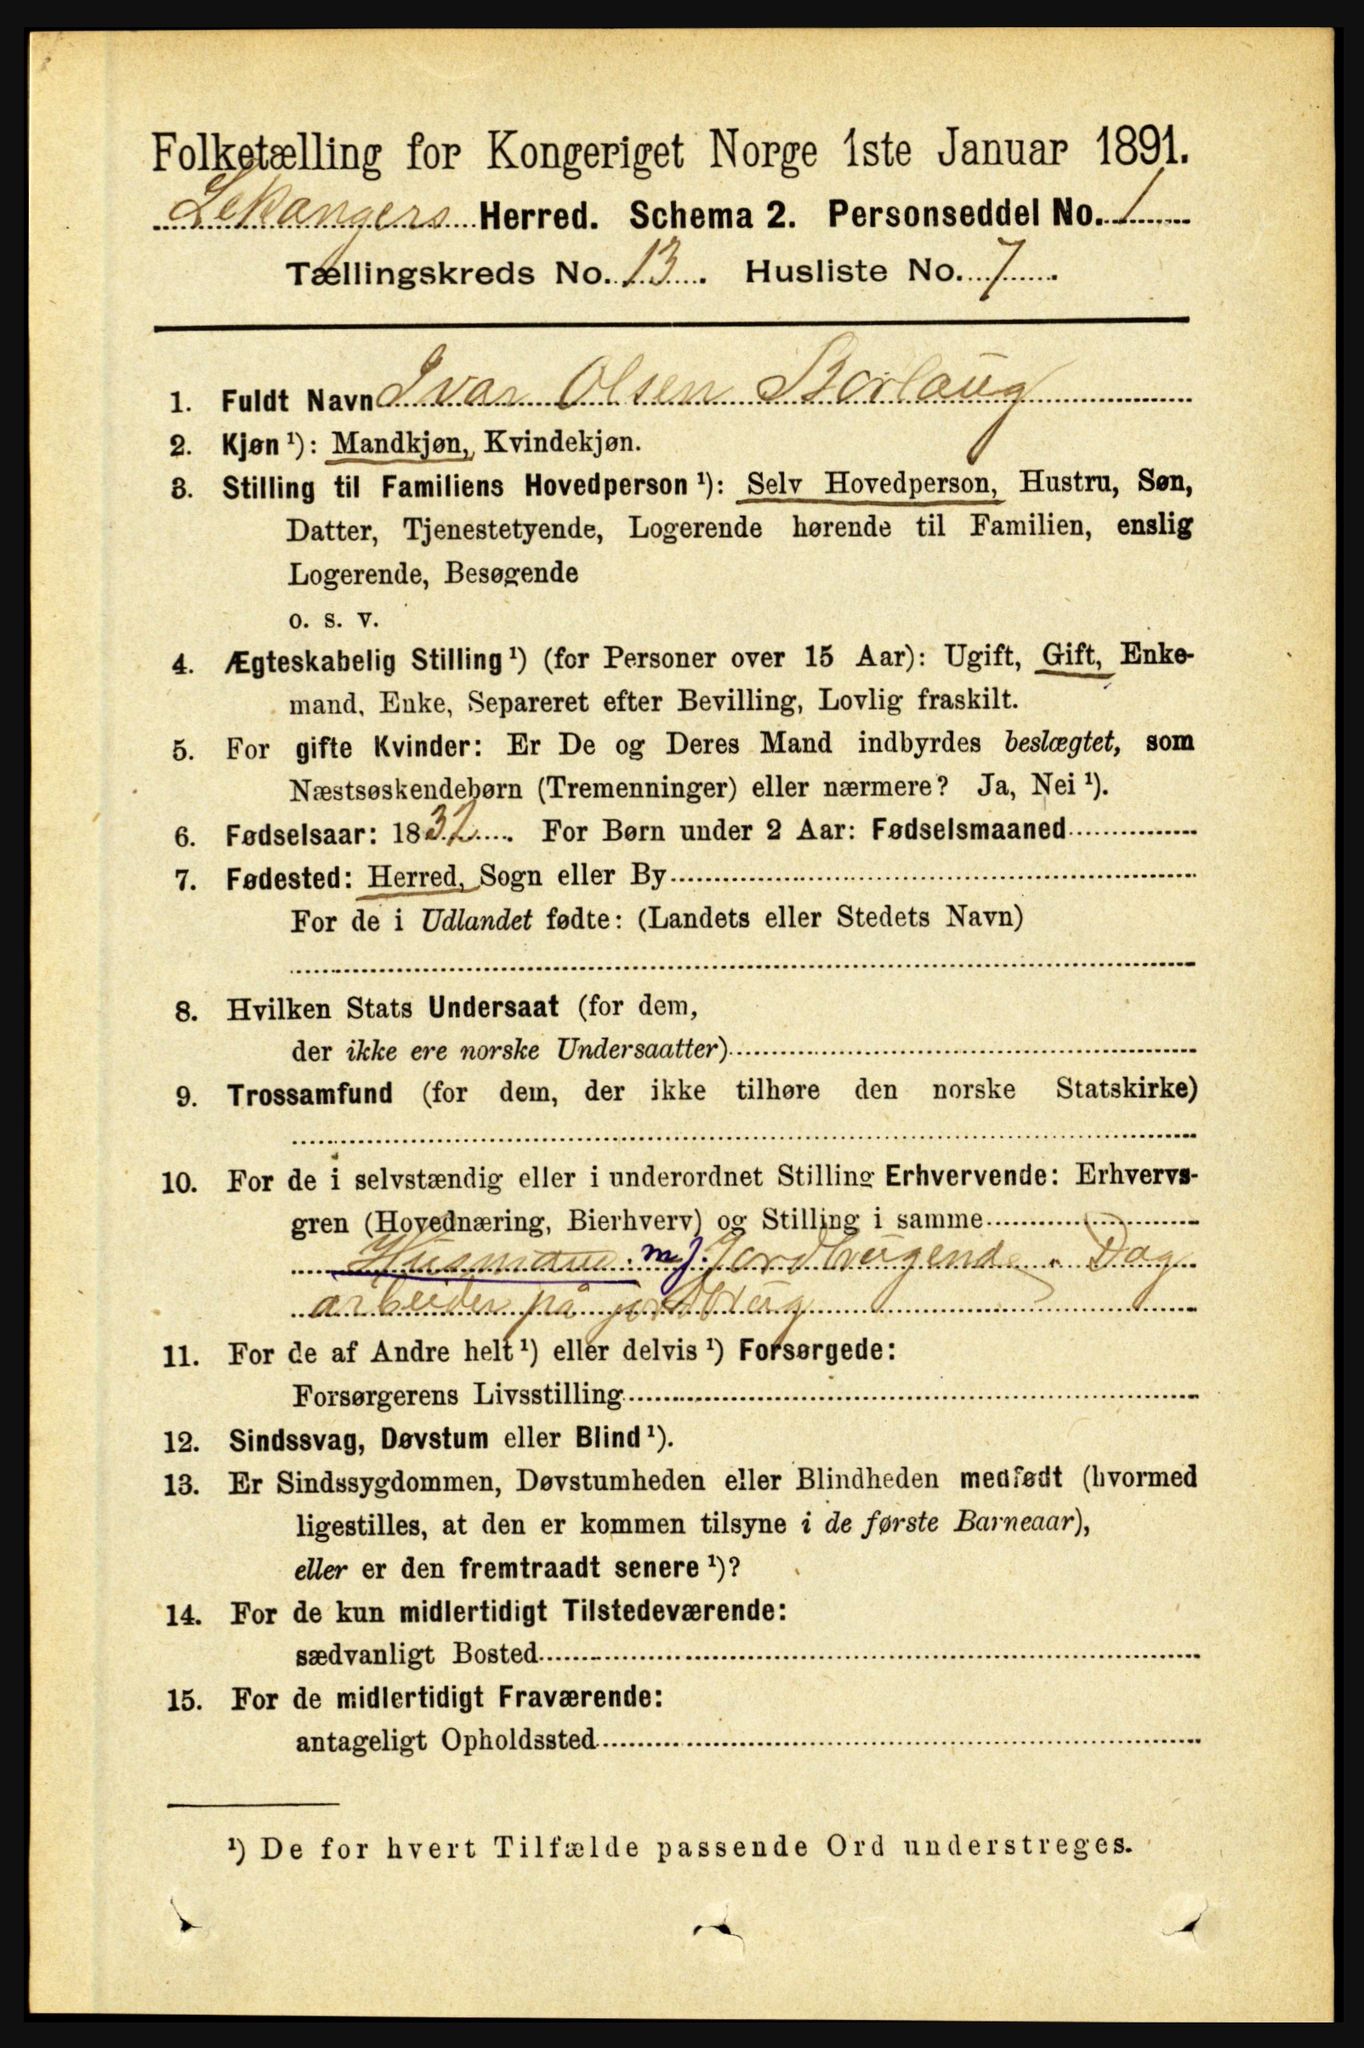 Folketælling for Kongeriget Norge 1ste Januar 1891.
Lekangers Herred. Schema 2. Personseddel No. 1
Tællingskreds No. 13. Husliste No. 7
1. Fuldt Navn Ivar Olsen Borlaug
2. Kjøn ¹): Mandkjøn, Kvindekjøn.
3. Stilling til Familiens Hovedperson ¹): Selv Hovedperson, Hustru, Søn,
Datter, Tjenestetyende, Logerende hørende til Familien, enslig
Logerende, Besøgende
o. s. v.
4. Ægteskabelig Stilling ¹) (for Personer over 15 Aar): Ugift, Gift, Enke-
mand, Enke, Separeret efter Bevilling, Lovlig fraskilt.
5. For gifte Kvinder: Er De og Deres Mand indbyrdes beslægtet, som
Næstsøskendebørn (Tremenninger) eller nærmere? Ja, Nei ¹).
6. Fødselsaar: 1832. For Børn under 2 Aar: Fødselsmaaned
7. Fødested: Herred, Sogn eller By
For de i Udlandet fødte: (Landets eller Stedets Navn)
8. Hvilken Stats Undersaat (for dem,
der ikke ere norske Undersaatter)
9. Trossamfund (for dem, der ikke tilhøre den norske Statskirke)
10. For de i selvstændig eller i underordnet Stilling Erhvervende: Erhvervs-
gren (Hovednæring, Bierhverv) og Stilling i samme
Husmand m J. Jordbrugende. Dag
arbeider på jordbrug
11. For de af Andre helt ¹) eller delvis ¹) Forsørgede:
Forsørgerens Livsstilling
12. Sindssvag, Døvstum eller Blind ¹).
13. Er Sindssygdommen, Døvstumheden eller Blindheden medfødt (hvormed
ligestilles, at den er kommen tilsyne i de første Barneaar),
eller er den fremtraadt senere ¹)?
14. For de kun midlertidigt Tilstedeværende:
sædvanligt Bosted
15. For de midlertidigt Fraværende:
antageligt Opholdssted
¹) De for hvert Tilfælde passende Ord understreges.